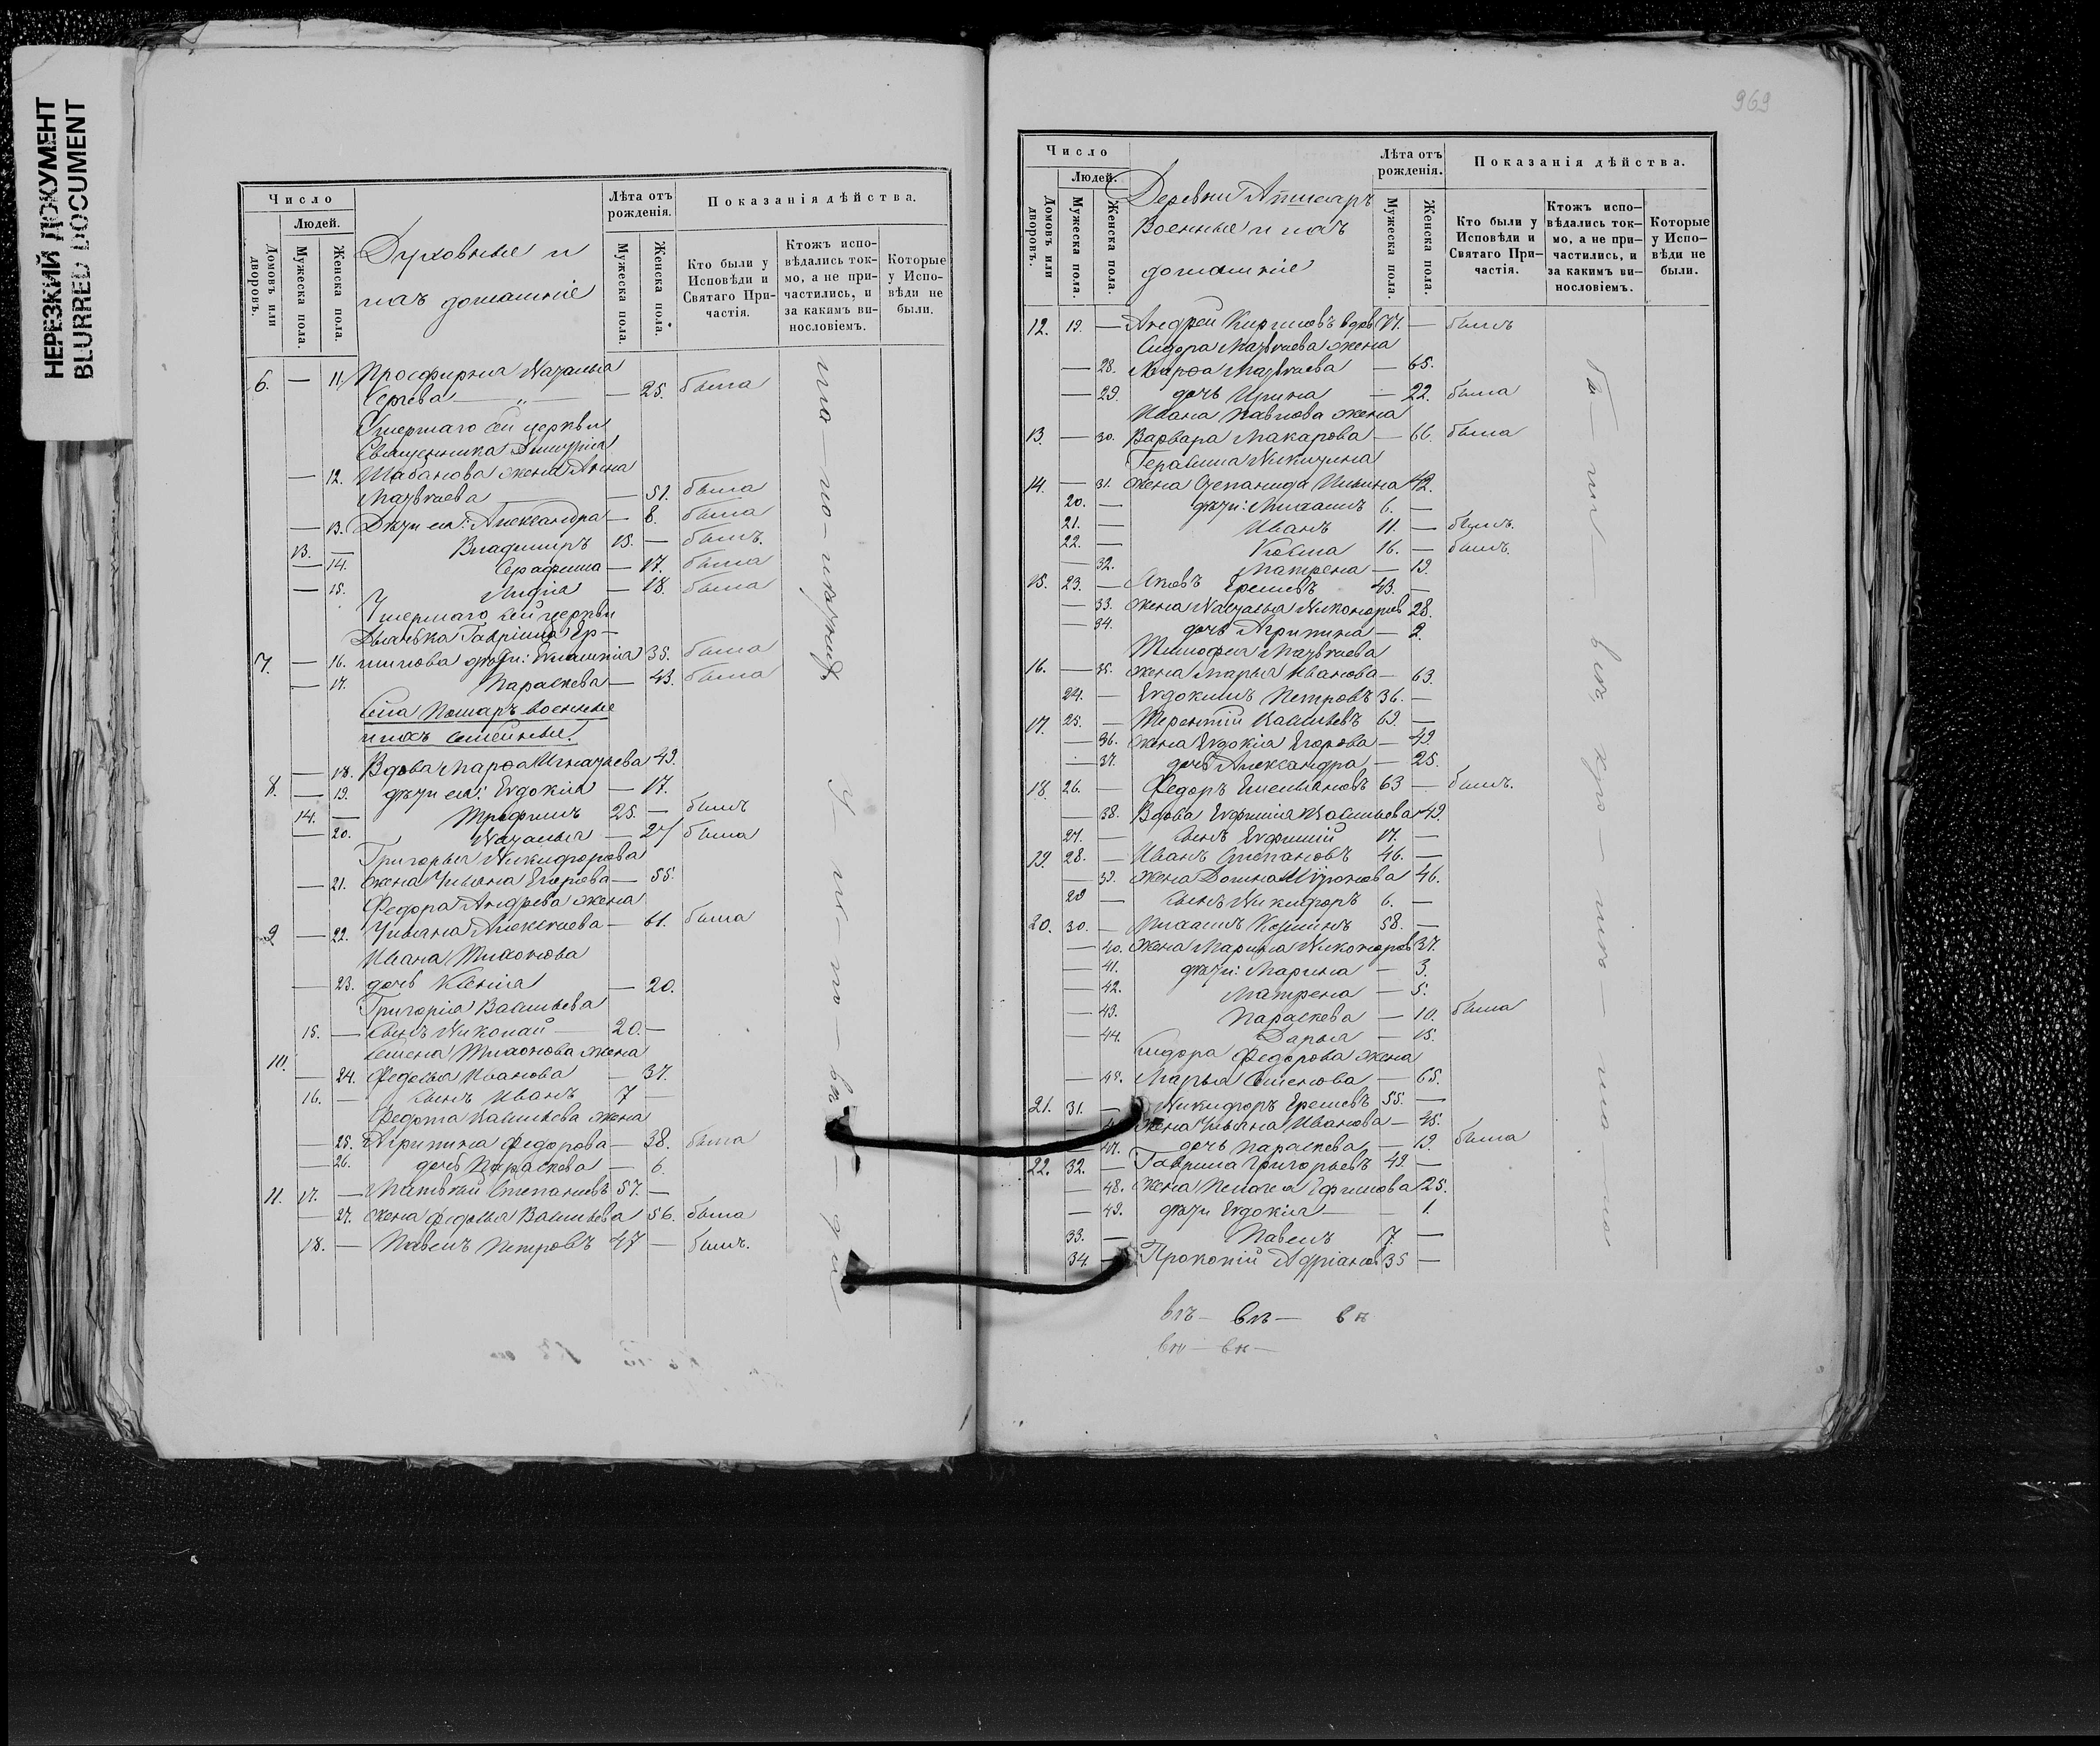 НЕРЕЗКИЙ ДОКУМЕНТ
BLURRED DOCUMENT
Число
Людей.
Домовъ или дворовъ.
Мужеска пола.
Женска пола.
Духовные и
ихъ домашніе
Лѣта отъ рожденія.
Мужеска пола.
Женска пола.
Показанія дѣйства.
Кто были у Исповѣди и Святаго При-
частія.
Ктожъ испо-
вѣдались ток-
мо, а не при-
частились, и
за какимъ ви-
нословіемъ.
Которые
у Испо-
вѣди не
были.
6. — 11. Просфирня Наталья
Сергѣева — „ — — 25. была
Умершаго сей церкви
Священника Димитрія
— 12. Шабанова жена Анна
Матвѣева — 51. была
— 13. Дѣти ея: Александра — 8. была
13. — Владимиръ 15. — былъ.
— 14. Серафима — 17. была
— 15. Лидія — 18. была
Умершаго сей церкви
Дьячка Гавріила Ер-
7. — 16. милова дѣти: Евлампія 35. была
— 17. Параскева — 43. была
Села военные
и ихъ семейные.
— 18. Вдова Марѳа Игнатьева 49.
8. — 19. дѣти ея: Евдокія — 17.
14. — Трофимъ 25. — былъ
— 20. Наталья — 27 была
Григорья Никифорова
— 21. жена Ульяна Егорова — 55.
Федора Андреева жена
9 — 22. Ульяна Алексѣева — 61. была
Ивана Тихонова
— 23. дочь Ксенія — 20.
Григорія Васильева
15. — сынъ Николай 20. —
Семена Тихонова жена
10. — 24. Федосья Иванова — 37.
16. — сынъ Иванъ 7 —
Федота Васильева жена
— 25. Агрипина Федорова — 38. была
— 26. дочь Параскева — 6.
11. 17. — Матвѣй Степановъ 57. —
— 27. жена Федосья Васильева 56. была
18. — Павелъ Петровъ 47 — былъ.
969
Число
Людей.
Домовъ или дворовъ.
Мужеска пола.
Женска пола.
Деревни
Военные и ихъ
домашніе
Лѣта отъ
рожденія.
Мужеска пола.
Женска пола.
Показанія дѣйства.
Кто были у
Исповѣди и
Святаго При-
частія.
Ктожъ испо-
вѣдались ток-
мо, а не при-
частились, и
за какимъ ви-
нословіемъ.
Которые
у Испо-
вѣди не
были.
12. 19. — Андрей Кириловъ вдов 77. — былъ
Сидора Матвѣева жена
— 28. Марѳа Матвѣева — 65.
— 29. дочь Ирина — 22. была
Ивана Павлова жена
13. — 30. Варвара Макарова — 66. была
Герасима Никитина
14. — 31. жена Степанида Ильина 42.
20. — дѣти: Михаилъ 6. —
21. — Иванъ 11. — былъ.
22. — Косма 16. — былъ.
— 32. Матрена — 19.
15. 23. — Яковъ Еремѣевъ 43. —
— 33. жена Наталья Никоноров 28.
— 34. дочь Агрипина — 2.
Тимофея Матвѣева
16. — 35. жена Марья Иванова — 63.
24. — Евдокимъ Петровъ 36. —
17. 25. — Терентій Васильевъ 69. —
— 36. жена Евдокія Егорова — 49.
— 37. дочь Александра — 25.
18. 26. — Федоръ Емельяновъ 63 — былъ.
— 38. Вдова Евфимія Васильева 49.
27. — сынъ Евфимій 17. —
19. 28. — Иванъ Степановъ 46. —
— 39. жена Домна Миронова 46.
29 — сынъ Никифоръ 6. —
20. 30. — Михаилъ Козминъ 58. —
— 40. жена Марина Никоноров 37.
— 41. дѣти: Марина — 3.
— 42. Матрена — 5.
— 43. Параскева — 10. была
— 44. Дарья — 15.
Сидора Федорова жена
— 45. Марья Семенова — 65.
21. 31. — Никифоръ Еремѣевъ 55. —
жена Ульяна Иванова — 45.
47. дочь Параскева — 19. была
22. 32. — Гаврила Григорьевъ 49. —
— 48. жена Пелагея Ефимова 25.
— 49. дѣти Евдокія — 1.
33. — Павелъ 7. —
34. — Прокопій Адріанов 35 —